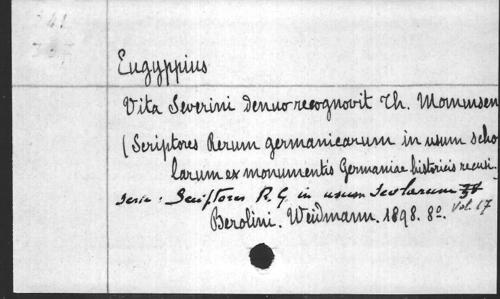 Eugyppius
Vita Severini denuo recognovit Th. Mommsen
(Scriptores Rerum germanicarum in usum scho
larum ex monumentis Germaniae historicis recusi.
serie: Scriptores R. G. in usum scolarum
Vol. 17
Berolini. Weidmann. 1898. 8º.